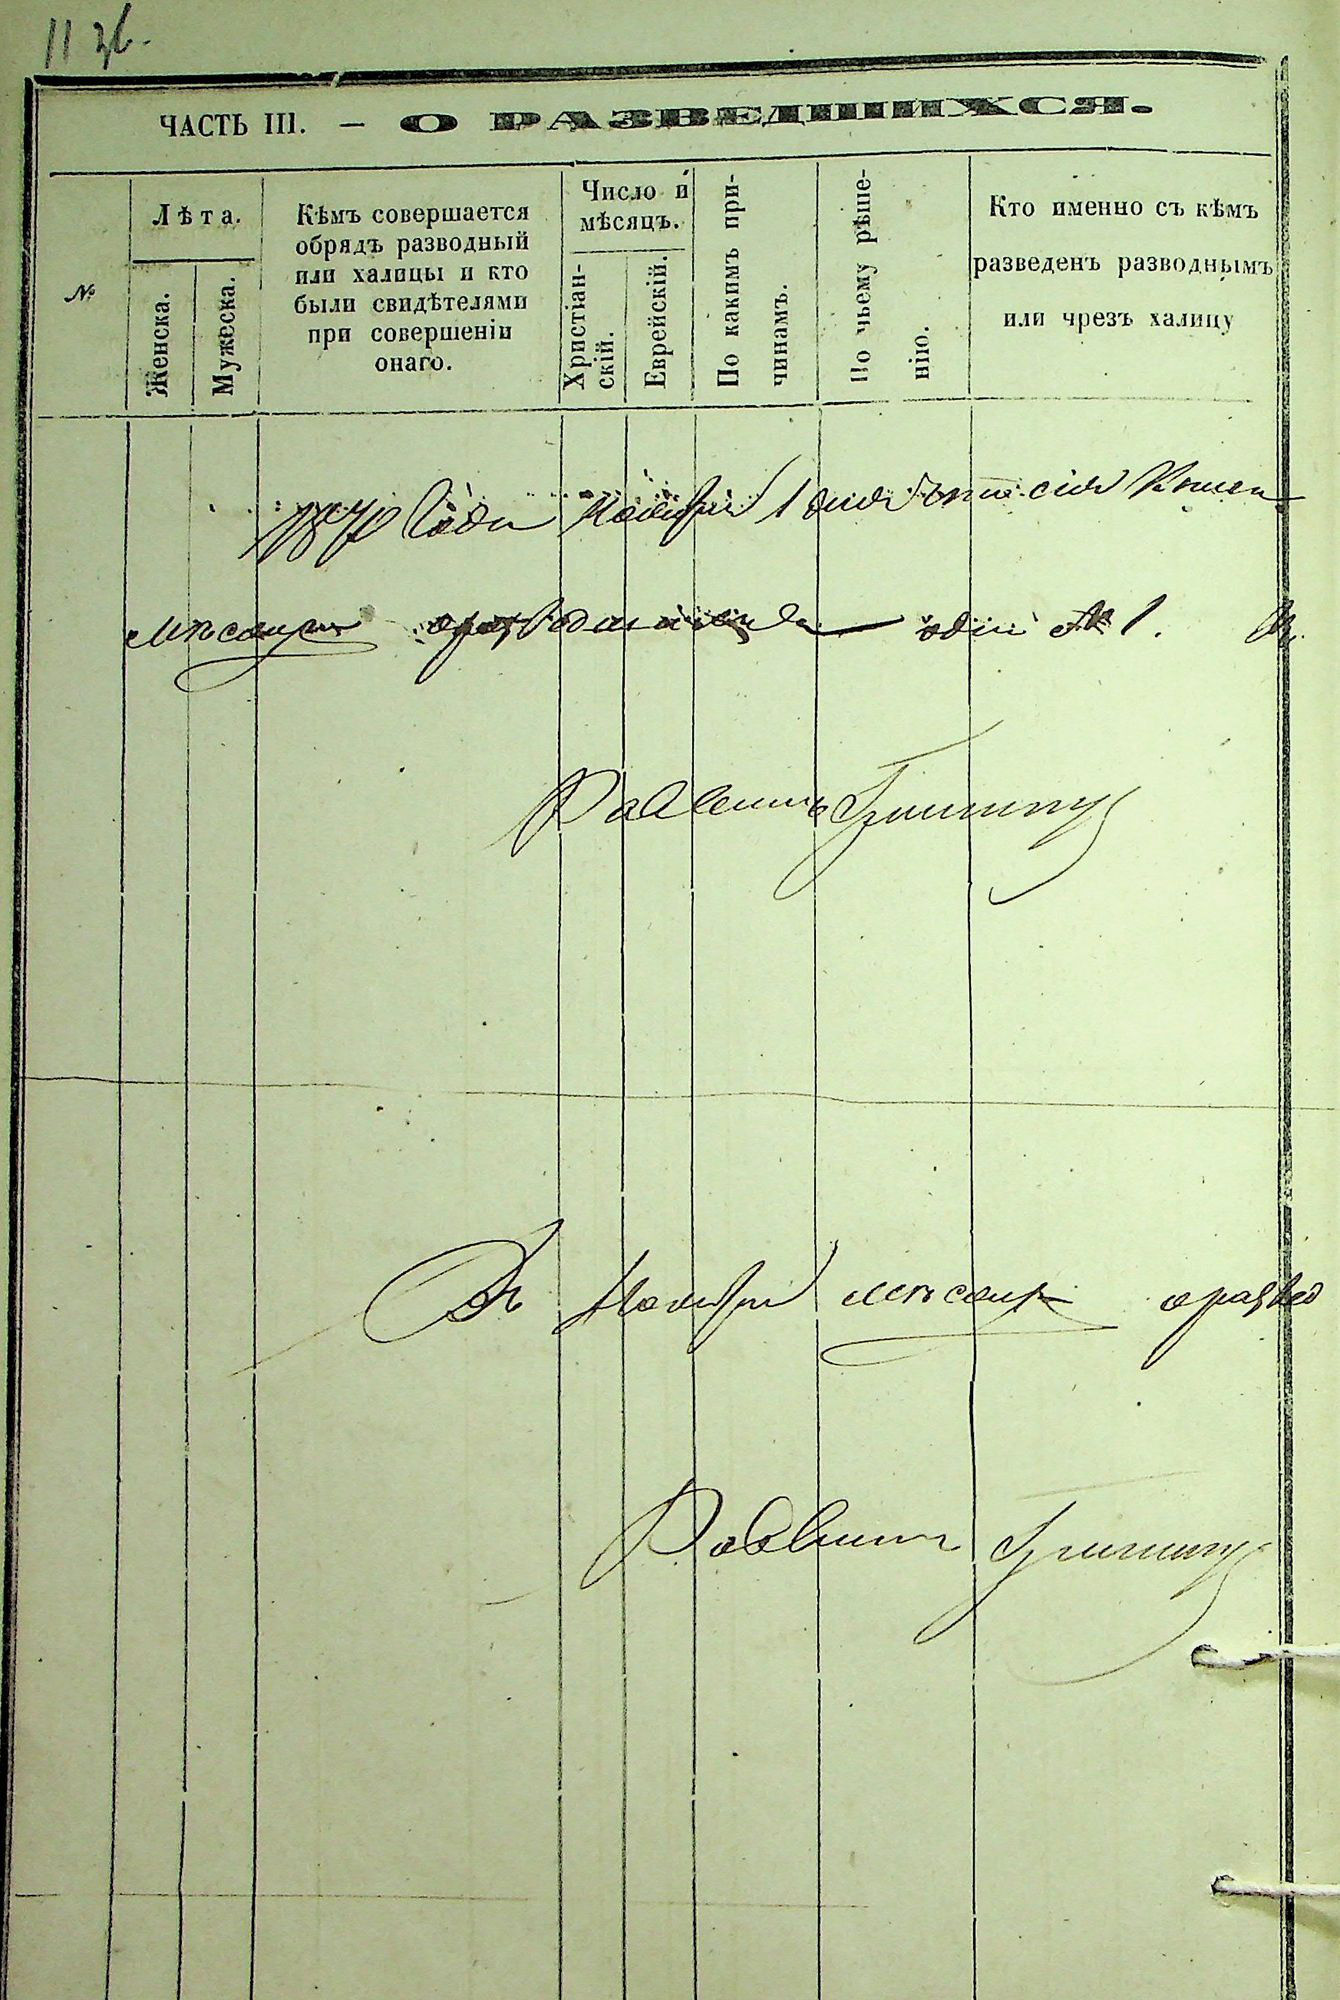 11 зв.
ЧАСТЬ III. — О РАЗВЕДШИХСЯ.
№
Лѣта.
Женска.
Мужеска.
Кѣмъ совершается
обрядъ разводный
или халицы и кто
были свидѣтелями
при совершеніи
онаго.
Число и
мѣсяцъ.
Христіан-
скій.
Еврейскій.
По какимъ при-
чинамъ.
По чьему рѣше-
нію.
Кто именно съ кѣмъ
разведенъ разводнымъ
или чрезъ халицу
1870 Года Ноября 1 дня сія
мѣсяцъ одна № 1.
Раввинъ
Въ Ноябрѣ мѣсяцѣ о развед
Раввинъ